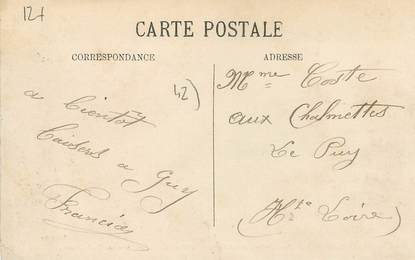 124
CARTE POSTALE
CORRESPONDANCE
ADRESSE
42)
a bientôt
Baisers a Guy
Francia
Mme Coste
aux Chalmettes
Le Puy
(Hte Loire)